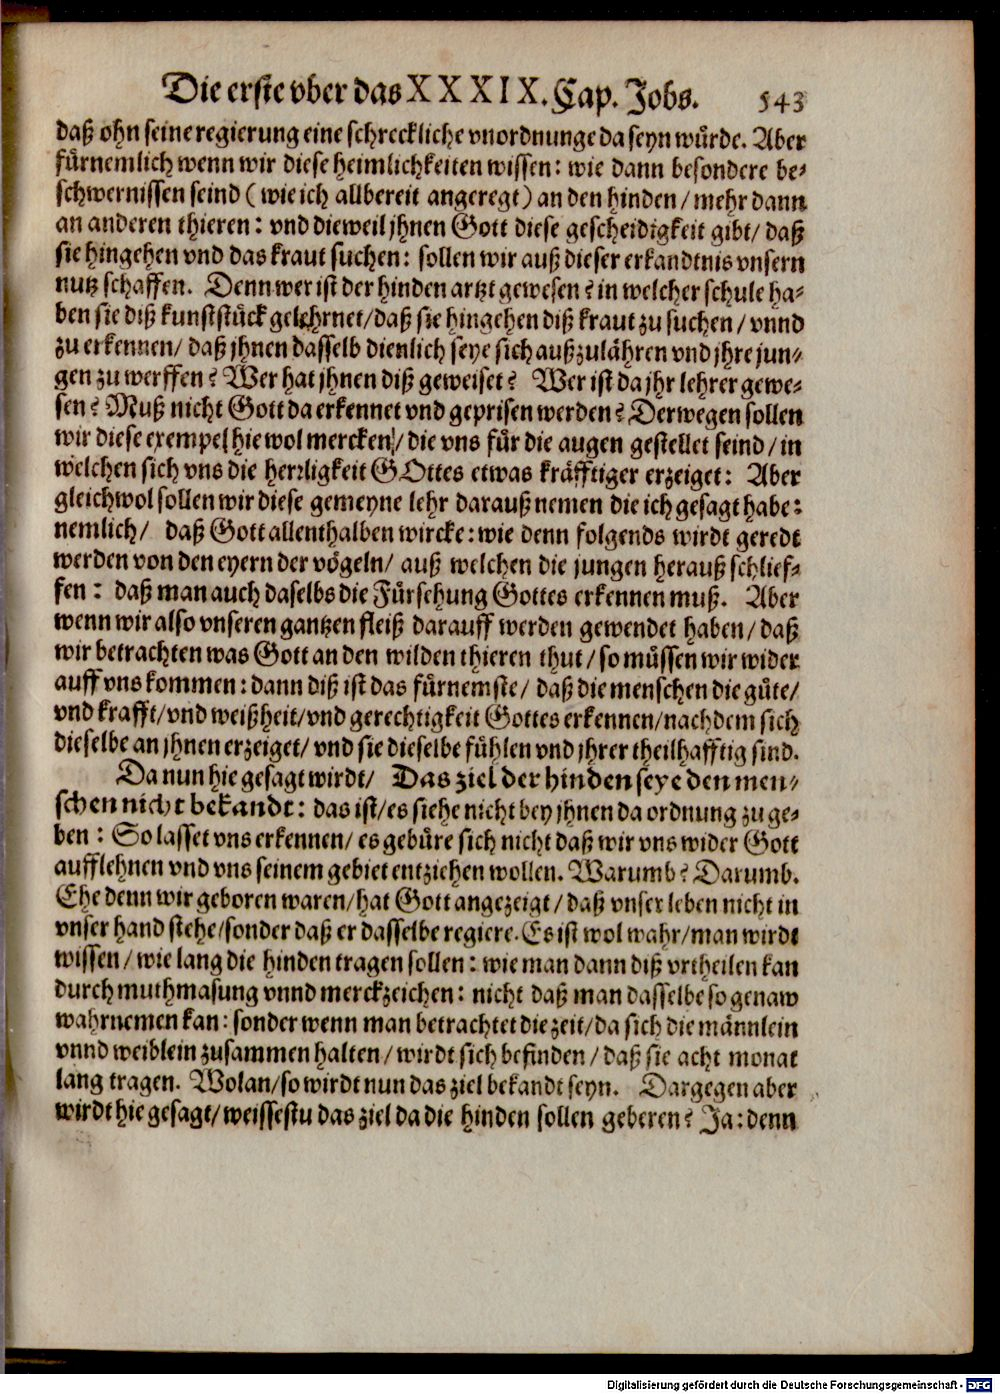 Die erste vber das XXXIX. Cap. Jobs. 543
daß ohn seine regierung eine schreckliche vnordnunge da seyn würde. Aber
fürnemlich wenn wir diese heimlichkeiten wissen: wie dann besondere be-
schwernissen seind (wie ich allbereit angeregt) an den hinden / mehr dann
an anderen thieren: vnd dieweil jhnen Gott diese gescheidigkeit gibt / daß
sie hingehen vnd das kraut suchen: sollen wir auß dieser erkandtnis vnsern
nutz schaffen. Denn wer ist der hinden artzt gewesen? in welcher schule ha-
ben sie diß kunststück gelehrnet / daß sie hingehen diß kraut zu suchen / vnnd
zu erkennen / daß jhnen dasselb dienlich seye sich außzulähren vnd jhre jun-
gen zu werffen? Wer hat jhnen diß geweiset? Wer ist da jhr lehrer gewe-
sen? Muß nicht Gott da erkennet vnd geprisen werden? Derwegen sollen
wir diese exempel hie wol mercken / die vns für die augen gestellet seind / in
welchen sich vns die herrligkeit GOttes etwas kräfftiger erzeiget: Aber
gleichwol sollen wir diese gemeyne lehr darauß nemen die ich gesagt habe:
nemlich / daß Gott allenthalben wircke: wie denn folgends wirdt geredt
werden von den eyern der vögeln / auß welchen die jungen herauß schlief-
fen: daß man auch daselbs die Fürsehung Gottes erkennen muß. Aber
wenn wir also vnseren gantzen fleiß darauff werden gewendet haben / daß
wir betrachten was Gott an den wilden thieren thut / so müssen wir wider
auff vns kommen: dann diß ist das fürnemste / daß die menschen die güte /
vnd krafft / vnd weißheit / vnd gerechtigkeit Gottes erkennen / nach dem sich
dieselbe an jhnen erzeiget / vnd sie dieselbe fühlen vnd jhrer theilhafftig sind.
Da nun hie gesagt wirdt / Das ziel der hinden seye den men-
schen nicht bekandt: das ist / es siehe nicht bey jhnen da ordnung zu ge-
ben: So lasset vns erkennen / es gebüre sich nicht daß wir vns wider Gott
aufflehnen vnd vns seinem gebiet entziehen wollen. Warumb? Darumb.
Ehe denn wir geboren waren / hat Gott angezeigt / daß vnser leben nicht in
vnser hand stehe / sonder daß er dasselbe regiere. Es ist wol wahr / man wirdt
wissen / wie lang die hinden tragen sollen: wie man dann diß vrtheilen kan
durch muthmasung vnnd merckzeichen: nicht daß man dasselbe so genaw
wahrnemen kan: sonder wenn man betrachtet die zeit / da sich die männlein
vnnd weiblein zusammen halten / wirdt sich befinden / daß sie acht monat
lang tragen. Wolan / so wirdt nun das ziel bekandt seyn. Dargegen aber
wirdt hie gesagt / weissestu das ziel da die hinden sollen geberen? Ja: denn
Digitalisierung gefördert durch die Deutsche Forschungsgemeinschaft - DFG